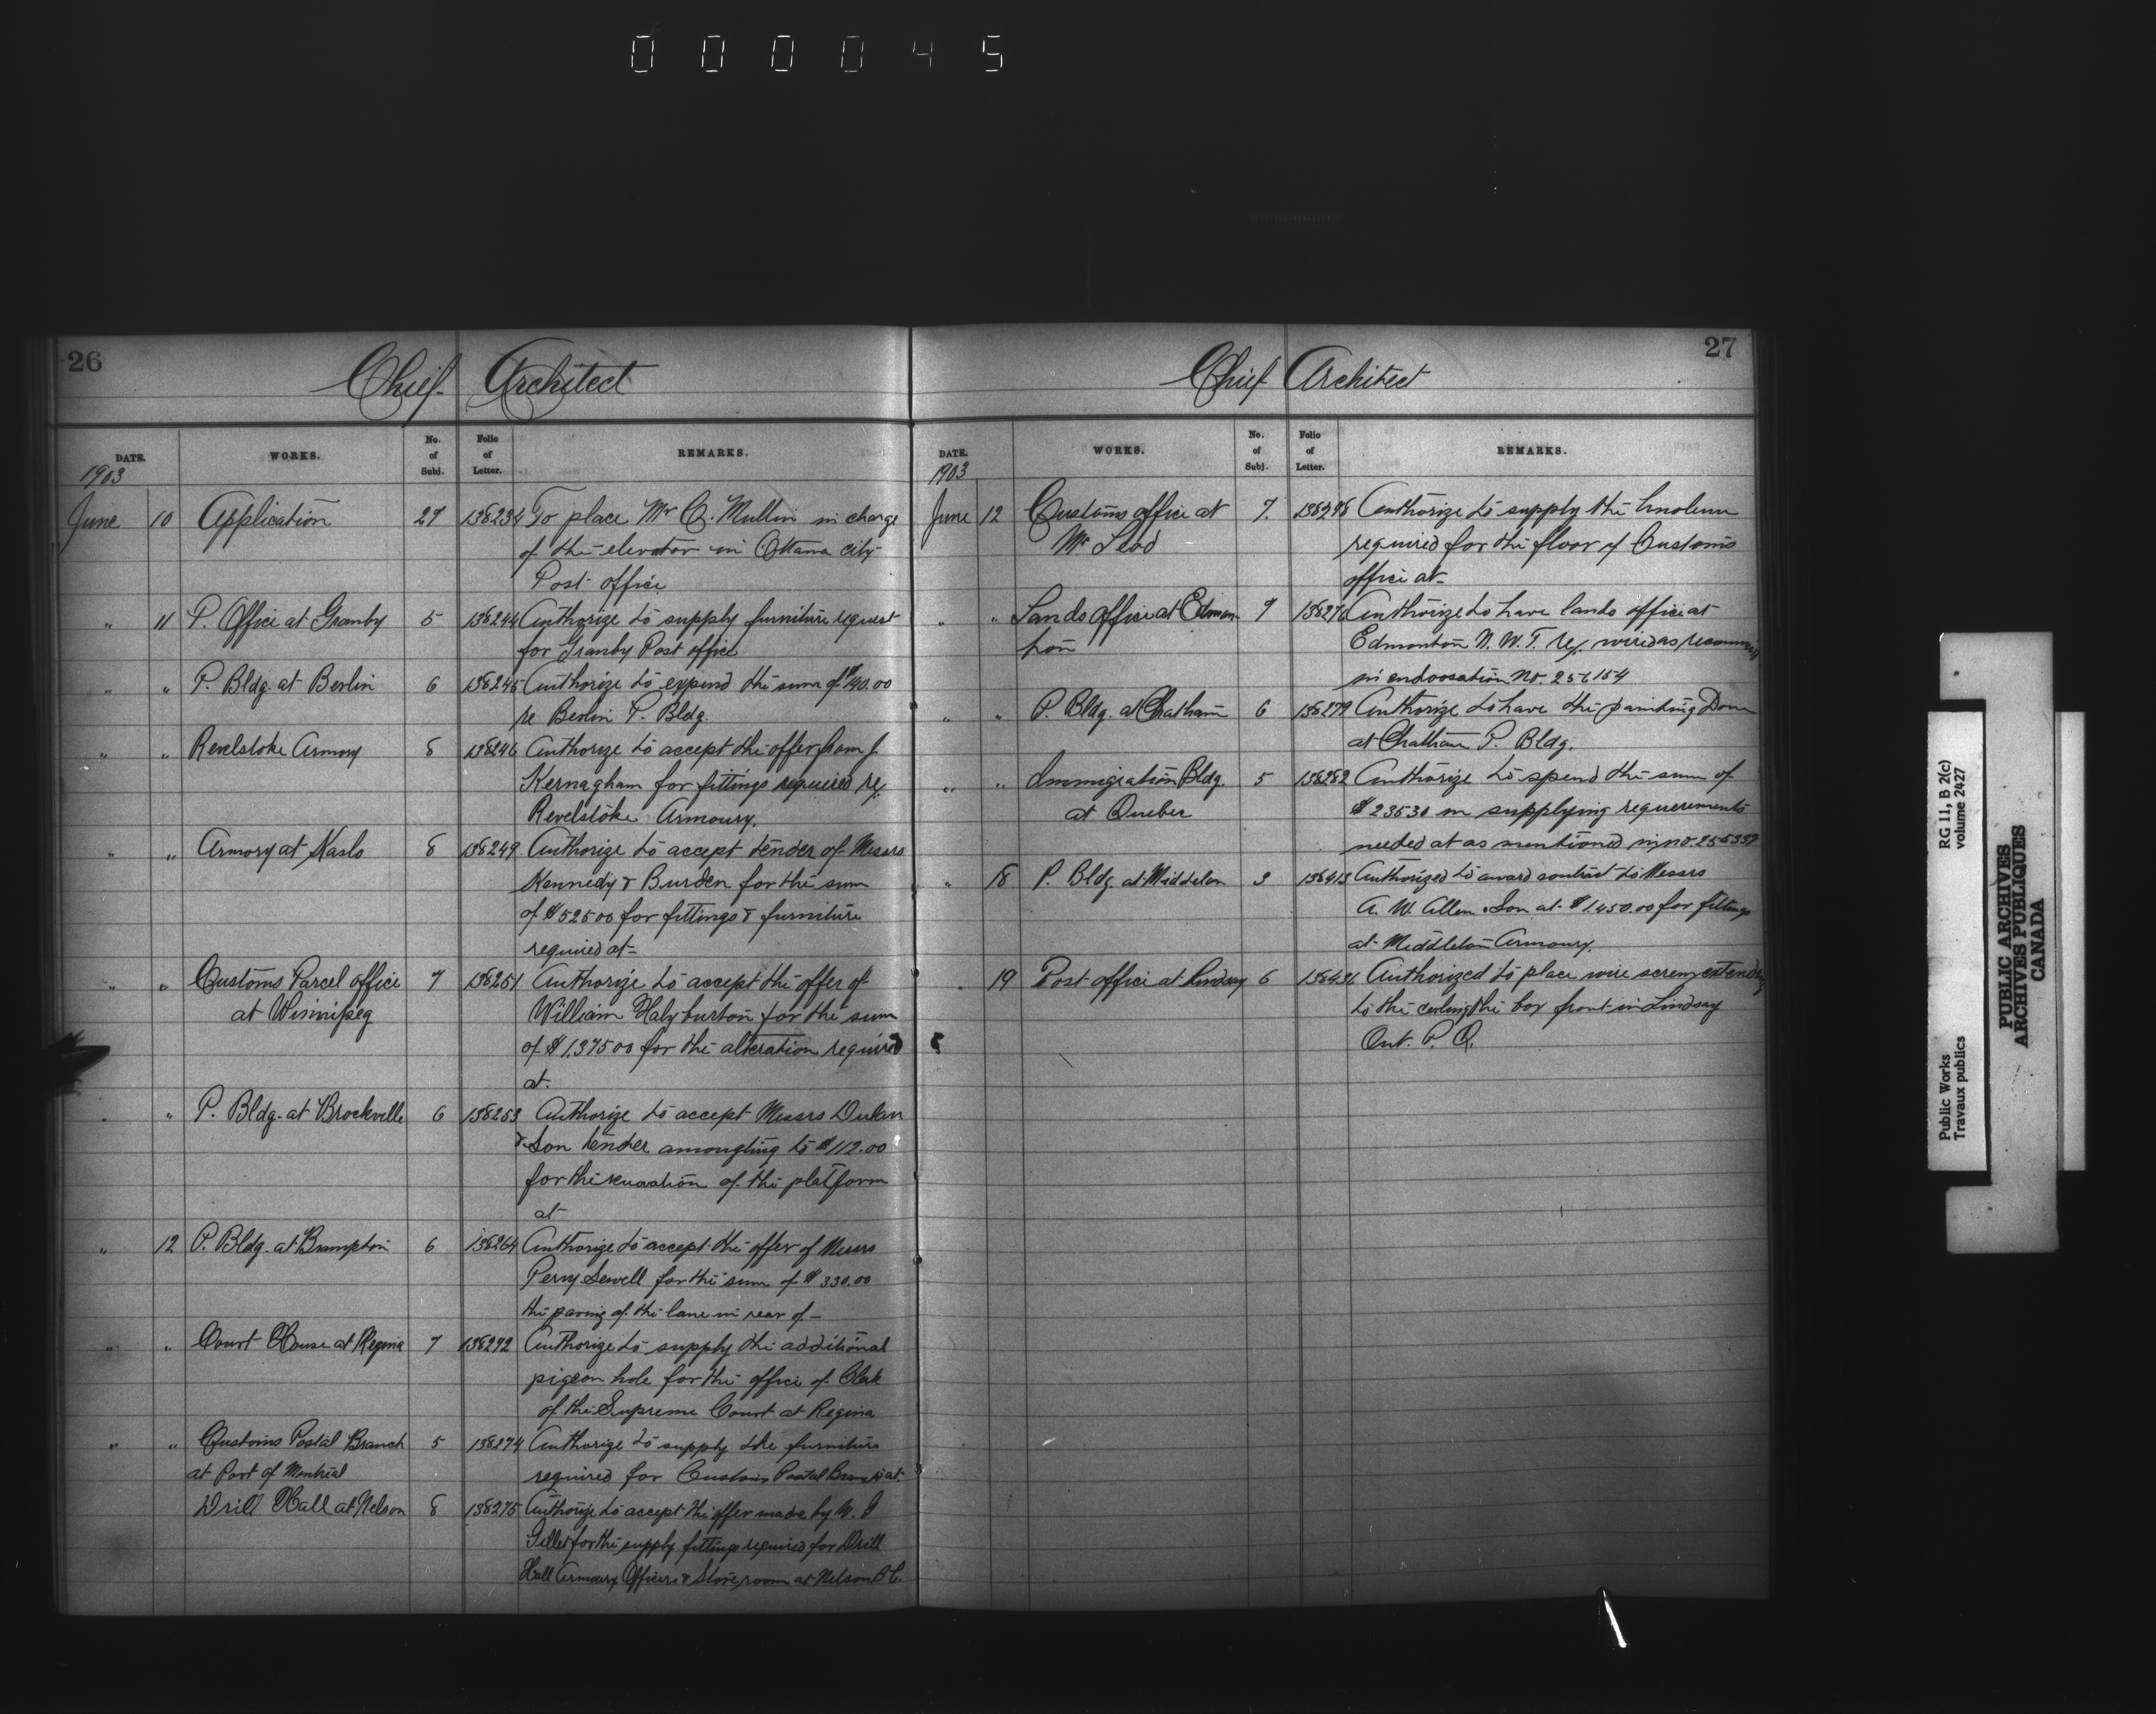 000045
26
Chief Architect
DATE. WORKS. No. of Subj. Folio of Letter. REMARKS.
1903
June 10 Application 27 138234 To place Mr Q. Mullin in charge
of the elevator in Ottawa city
Post office
" 11 P. Office at Granby 5 138244 Authorize to supply furniture request
for Granby Post office
" " P. Bldg. at Berlin 6 138245 Authorize to expend the sum of $140.00
re Berlin P. Bldg.
" " Revelstoke Armory 8 138246 Authorize to accept the offer from J.
Kernagham for fittings required re/.
Revelstoke Armoury.
" " Armory at Kaslo 8 138249 Authorize to accept tender of Messrs
Kennedy & Burden for the sum
of $525 00 for fittings & furniture
required at-
" " Customs Parcel office 7 138251 Authorize to accept the offer of
at Winnipeg William Halyburton for the sum
of $1,375 00 for the alteration required
at.
" P. Bldg. at Brockville 6 138253 Authorize to accept Messrs
& Son tender amougting to $112.00
for the renovation of the platform
at
" 12 P. Bldg. at Brampton 6 138264 Authorize to accept the offer of Messrs
Perry Sewell for the sum of $330.00
the paving of the lane in rear of-
" " Court House at Regina 7 138272 Authorize to supply the additional
pigeon hole for the office of Clerk
of the Supreme Court at Regina
" " Customs Postal Branch 5 138274 Authorize to supply the furniture
at Port of Montreal required for Customs Postal Branch at.
Drill Hall at Nelson 8 138275 Authorize to accept the offer made by
for the supply fittings required for Drill
Hall Armoury Officers & Store, room at Nelson B.C.
27
Chief Architect
DATE. WORKS. No. of Subj. Folio of Letter. REMARKS.
1903
June 12 Customs office at 7. Authorize to supply the linoleum
Mc Leod required for the floor of Customs
office at-
" " Lands Office at Edmon- 7 138276 Authorize to have lands office at
ton Edmonton N. W. T. re/. wired as
in No. 256154
" " P. Bldg. at Chatham 6 138279 Authorize to have the painting Done
at Chatham P. Bldg.
" " Immigration Bldg. 5 138282 Authorize to spend the sum of
at Quebec $235 30 in supplying requerements
needed at as mentioned in no.
" 18 P. Bldg. at Middleton 3 138413 Authorized to award contract to Messrs
A. W. Allen & Son at $1.450.00 for fittings
at Middleton Armoury.
19 Post office at Lindsay 6 138436 Authorized to place wire screen extending
to the ceiling the box front in Lindsay
Ont. P. O.
RG 11, B 2(c)
volume 2427
Public Works
Travaux publics
PUBLIC ARCHIVES
ARCHIVES PUBLIQUES
CANADA